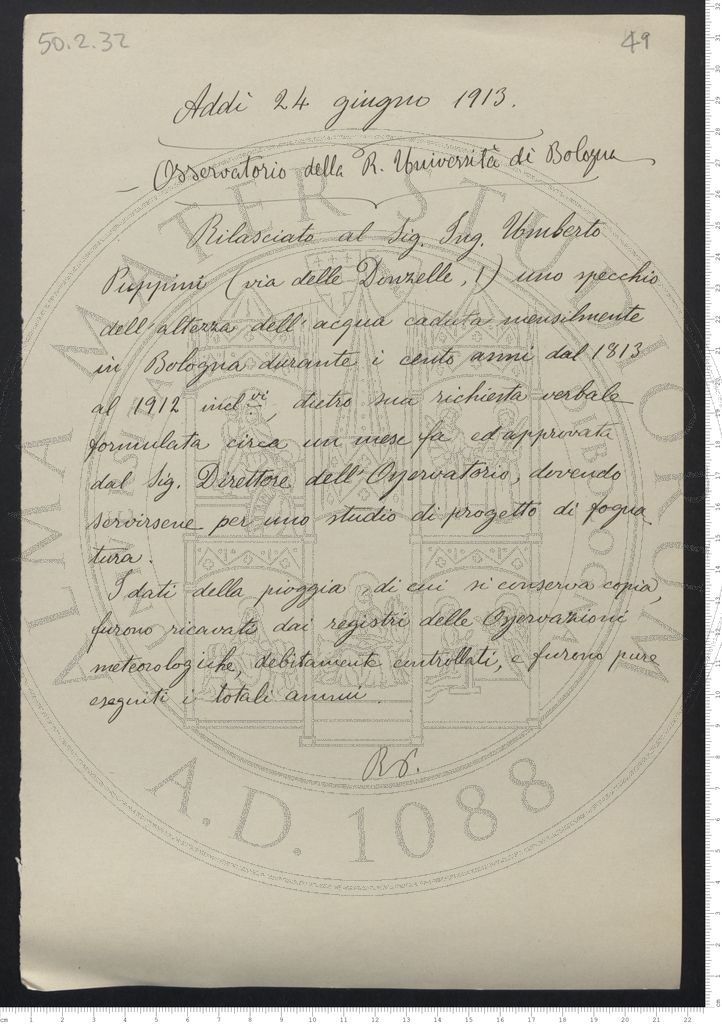 50.2.32
49
Addì 24 giugno 1913.
Osservatorio della R. Università di Bologna
Rilasciato al Sig. Ing. Umberto
Puppini (via delle Donzelle, 1) uno specchio
dell'altezza dell'acqua caduta mensilmente
in Bologna durante i cento anni dal 1813
al 1912 incl.vi, dietro sua richiesta verbale
formulata circa un mese fa ed approvata
dal Sig. Direttore dell'Osservatorio, dovendo
servirsene per uno studio di progetto di fogna
tura.
I dati della pioggia, di cui si conserva copia,
furono ricavati dai registri delle Osservazioni
meteorologiche, debitamente controllati, e furono pure
eseguiti i totali annui.
ALMA MATER STUDIORUM
A.D. 1088